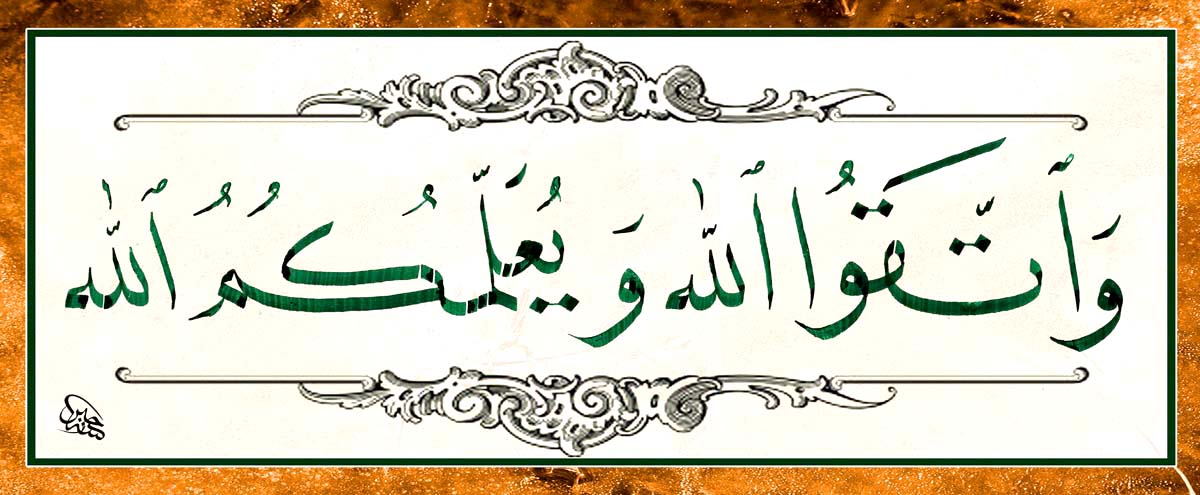 وَٱتَّقُوا ٱللّٰه وَ يُعَلِّمُكُمُ ٱللّٰه